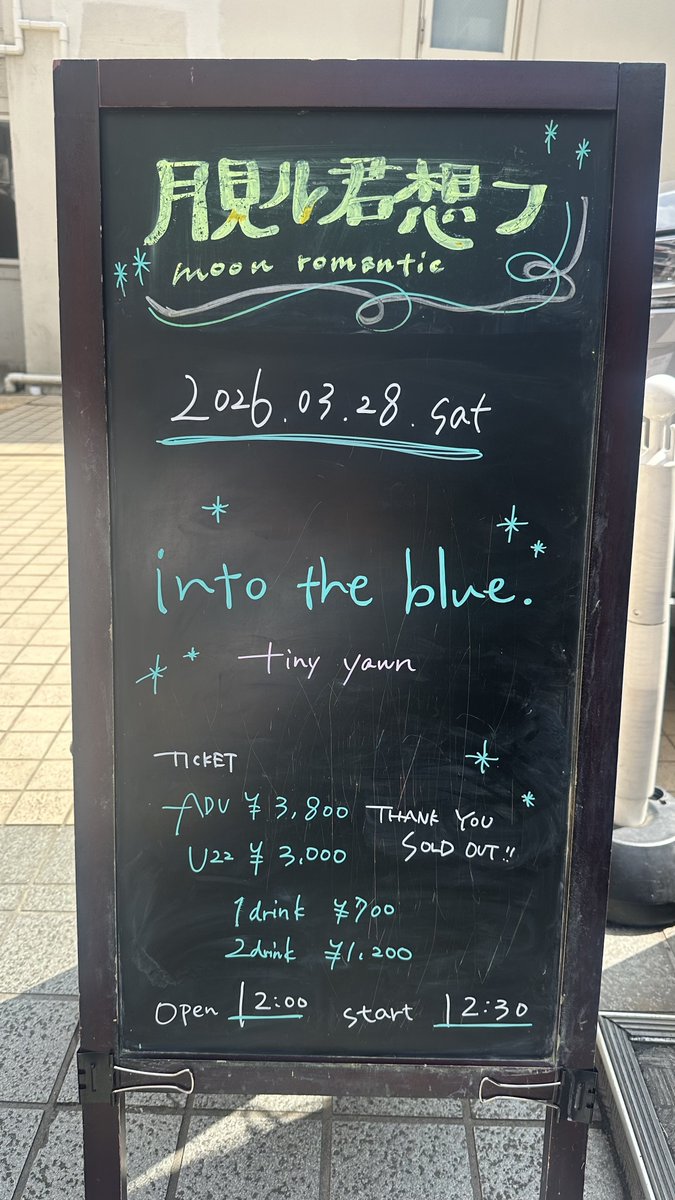 月見ル君想フ
moon romantic
2026.03.28.sat
into the blue.
tiny yawn
TICKET
ADV ¥3,800 THANK YOU
U22 ¥3,000 SOLD OUT!!
1drink ¥700
2drink ¥1,200
open 12:00 start 12:30